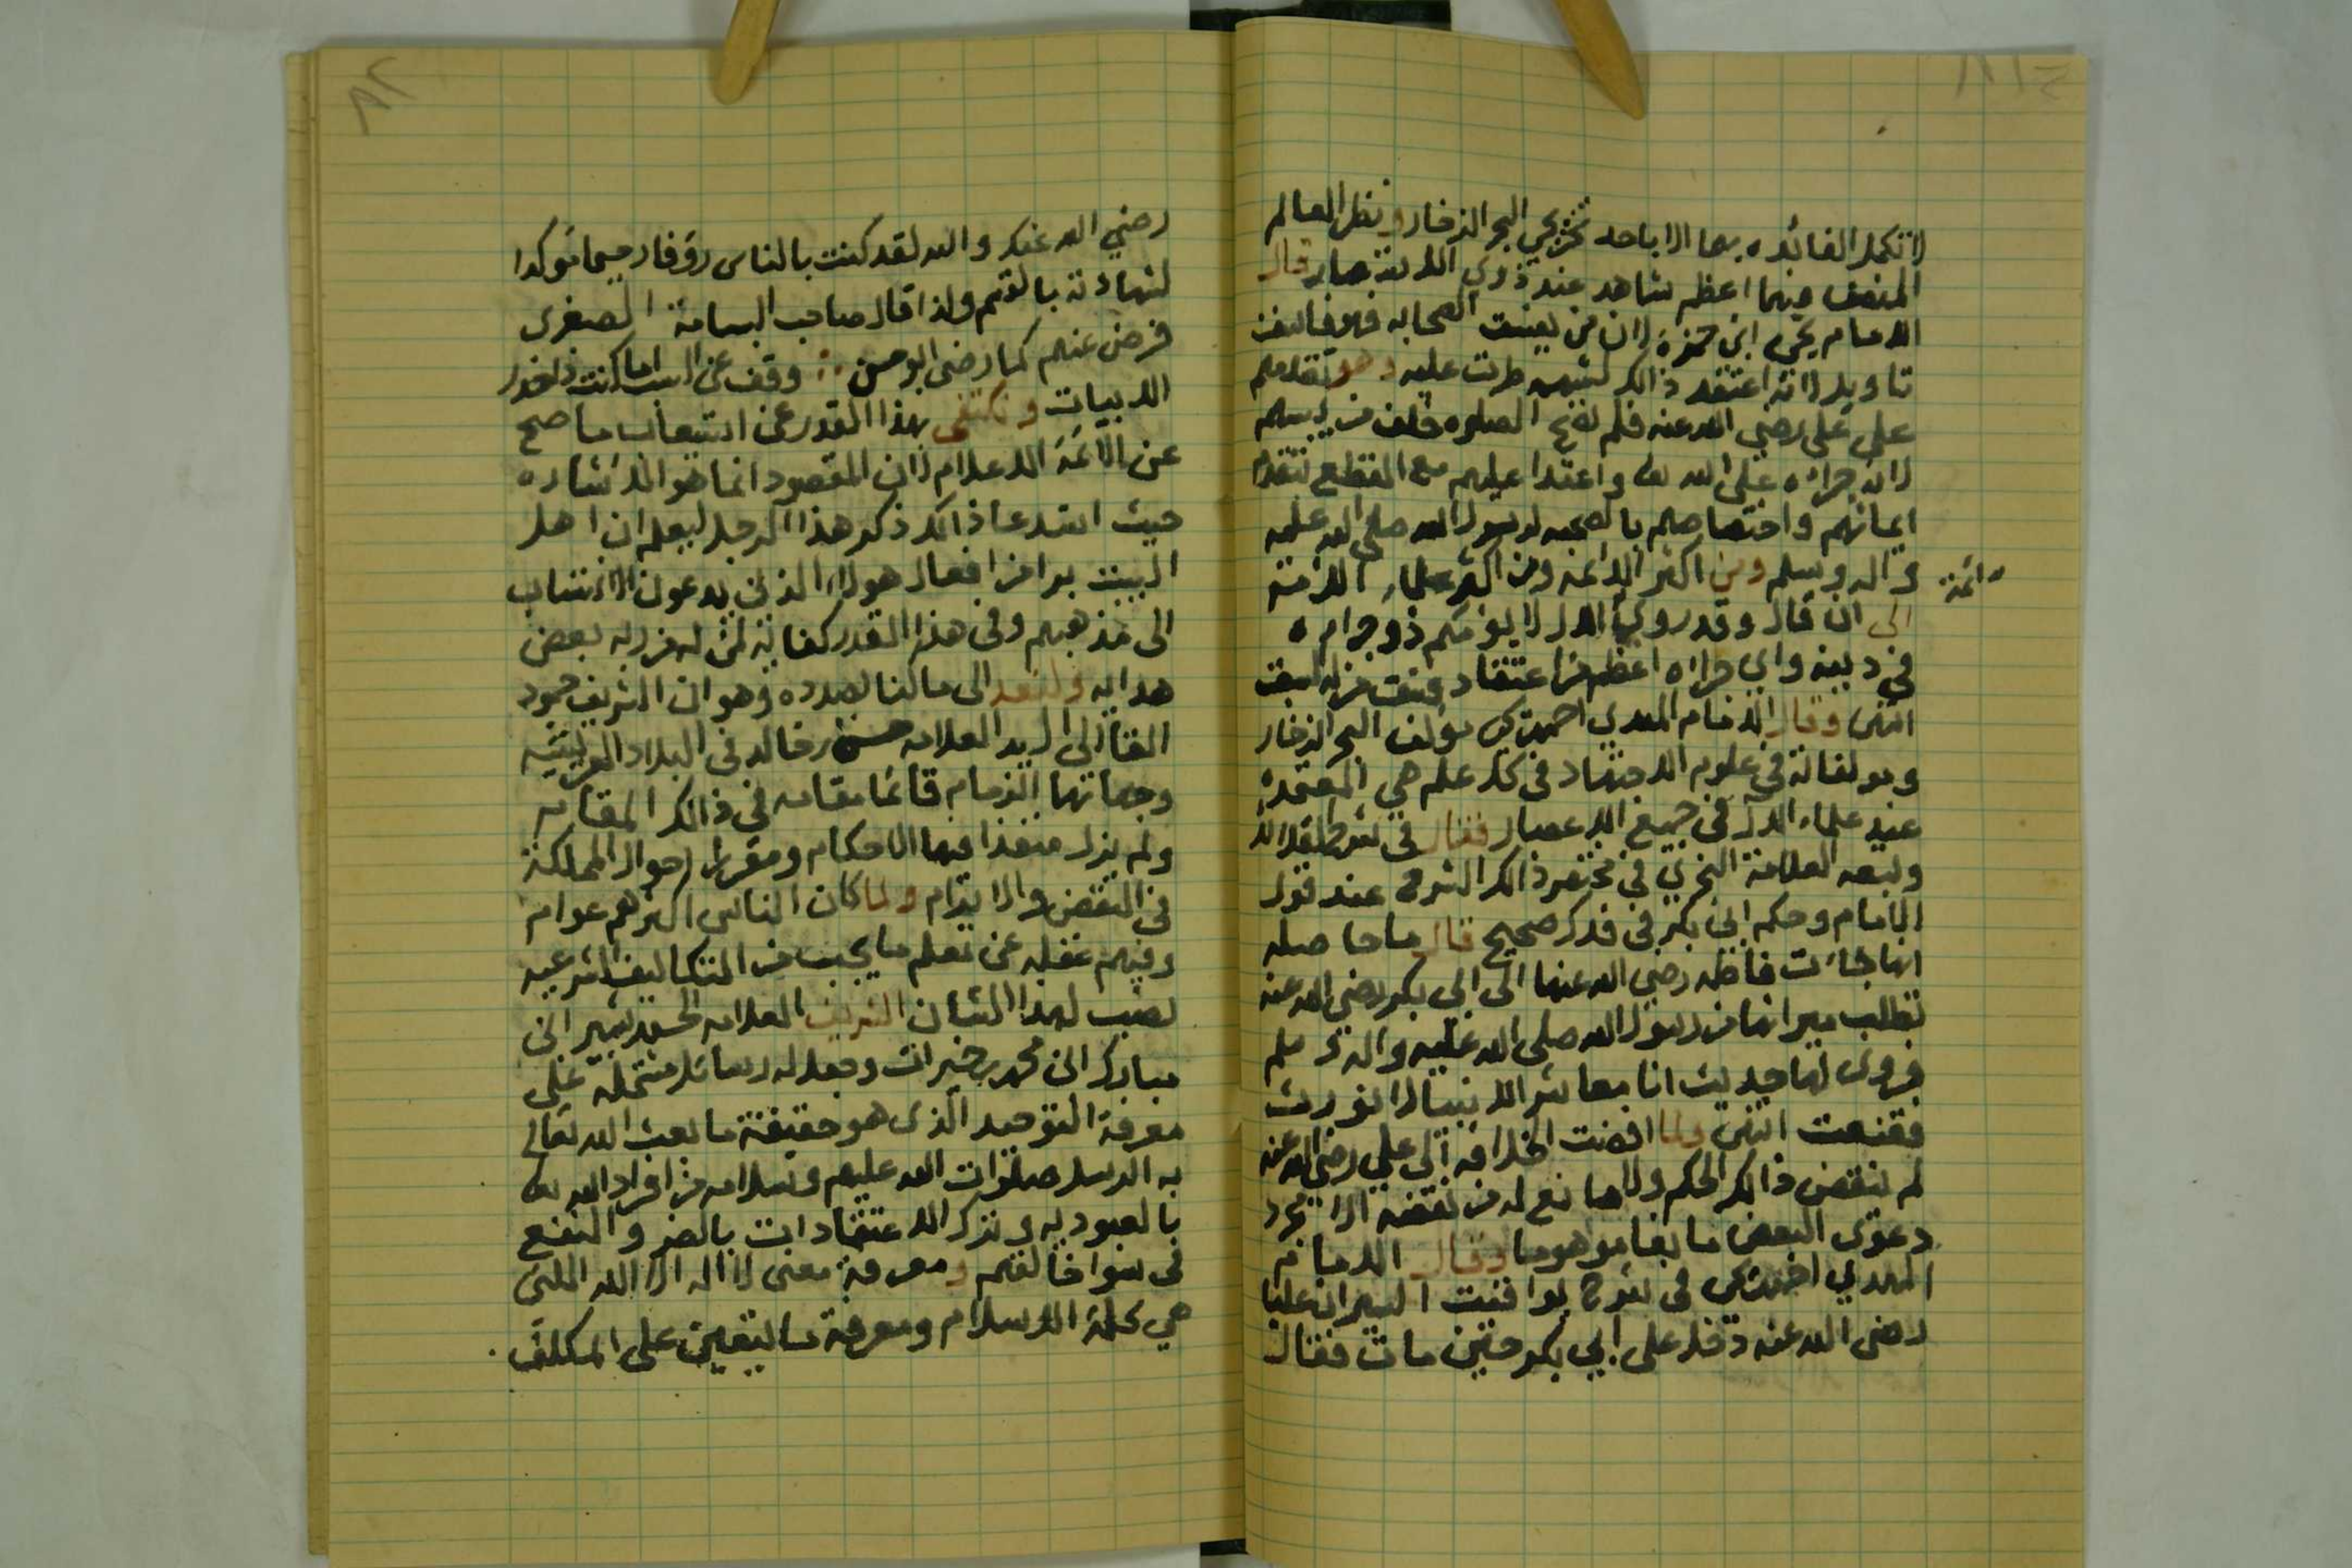 لا تكمل الفائده بها الا باحد تخريجي البحر الزخار ونظر العالم
المنصف فيهما اعظم شاهد عند ذوي الابصار قال
الامام يحيى ابن حمزة لان من يعنت الصحابه فهو فاسق
تاويل لانه اعتقد ذالك لشبهه طرت عليه وهو تقدمهم
على علي رضي الله عنه فلم تصح الصلوه خلف من يسبهم
لانه جرائه على الله تعالى واعتدا عليهم مع القطع بتقدم
ايمانهم واختصاصهم بالصحبه لرسول الله صلى الله عليه
واله وسلم ومن اكثر الائمه ومن اكثر علماء الامة
ائمة
الى ان قال وقد روي الال لا يؤمكم ذو جراه
في دينه واي جراه اعظم من اعتقاد فسق من له السبق
انتهى وقال الامام المهدي احمد بن يحيى مؤلف البحر الزخار
ومولفاته في علوم الاجتهاد في كل علم هي المعتمدة
عند علماء الال في جميع الاعصار فقال في شرح
وتبعه العلامة النجري في مختصر ذالك الشرح عند قول
الامام وحكم ابي بكر في فدك صحيح قال ما حاصله
انها جائت فاطمه رضي الله عنها الى ابي بكر رضي الله عنه
تطلب ميراثها من رسول الله صلى الله عليه واله وسلم
فروى لها حديث انا معاشر الانبياء لا نورث
فقنعت انتهى ولما افضت الخلافه الى علي رضي الله عنه
لم ينقض ذالك الحكم ولا مانع له من نقضه الا مجرد
دعوى البعض مانعا موهوما وقال الامام
المهدي احمد بن يحيى في شرح لوافقت السيران عليا
رضي الله عنه دخل على ابي بكر حين مات فقال
رضي الله عنك والله لقد كنت بالناس رؤفا رحيما مؤكدا
لشهادته بالقسم ولذا قال صاحب البسامة الصغرى
فرض عنهم كما رضى ابو حسن .: وقف عن السب اما كنت ذا حذر
الابيات ونكتفي بهذا القدر عن استيعاب ما صح
عن الائمة الاعلام لان المقصود انما هو الاشاره
حيث استدعا ذالك ذكر هذا الرجل ليعلم ان اهل
البيت برا من افعال هولاء الذين يدعون الانتساب
الى مذهبهم وفي هذا القدر كفاية لمن له من ربه بعض
هدايه ولنعد الى ما كنا بصدده وهو ان الشريف حمود
القا الى السيد العلامه حسن بن خالد في البلاد العريشيه
وجهاتها الزمام قائما مقامه في ذالك المقام
ولم يزل منفذا فيها الاحكام ومقررا احوال المملكة
في النقض والابرام ولما كان الناس اكثرهم عوام
وفيهم غفله عن تعلم ما يجب من التكاليف الشرعيه
نصب لهذا الشان الشريف العلامه الحسن بن بشير ابن
مبارك ابن محمد بن خيرات وجعل له رسائل مشتمله على
معرفة التوحيد الذي هو حقيقة ما بعث الله تعالى
به الرسل صلوات الله عليهم وسلامه من افراد الله تعالى
بالعبوديه وترك الاعتقادات بالضر والنفع
في سوا خالقهم ومعرفة معنى لا اله الا الله التي
هي كلمة الاسلام ومعرفة ما يتعين على المكلف